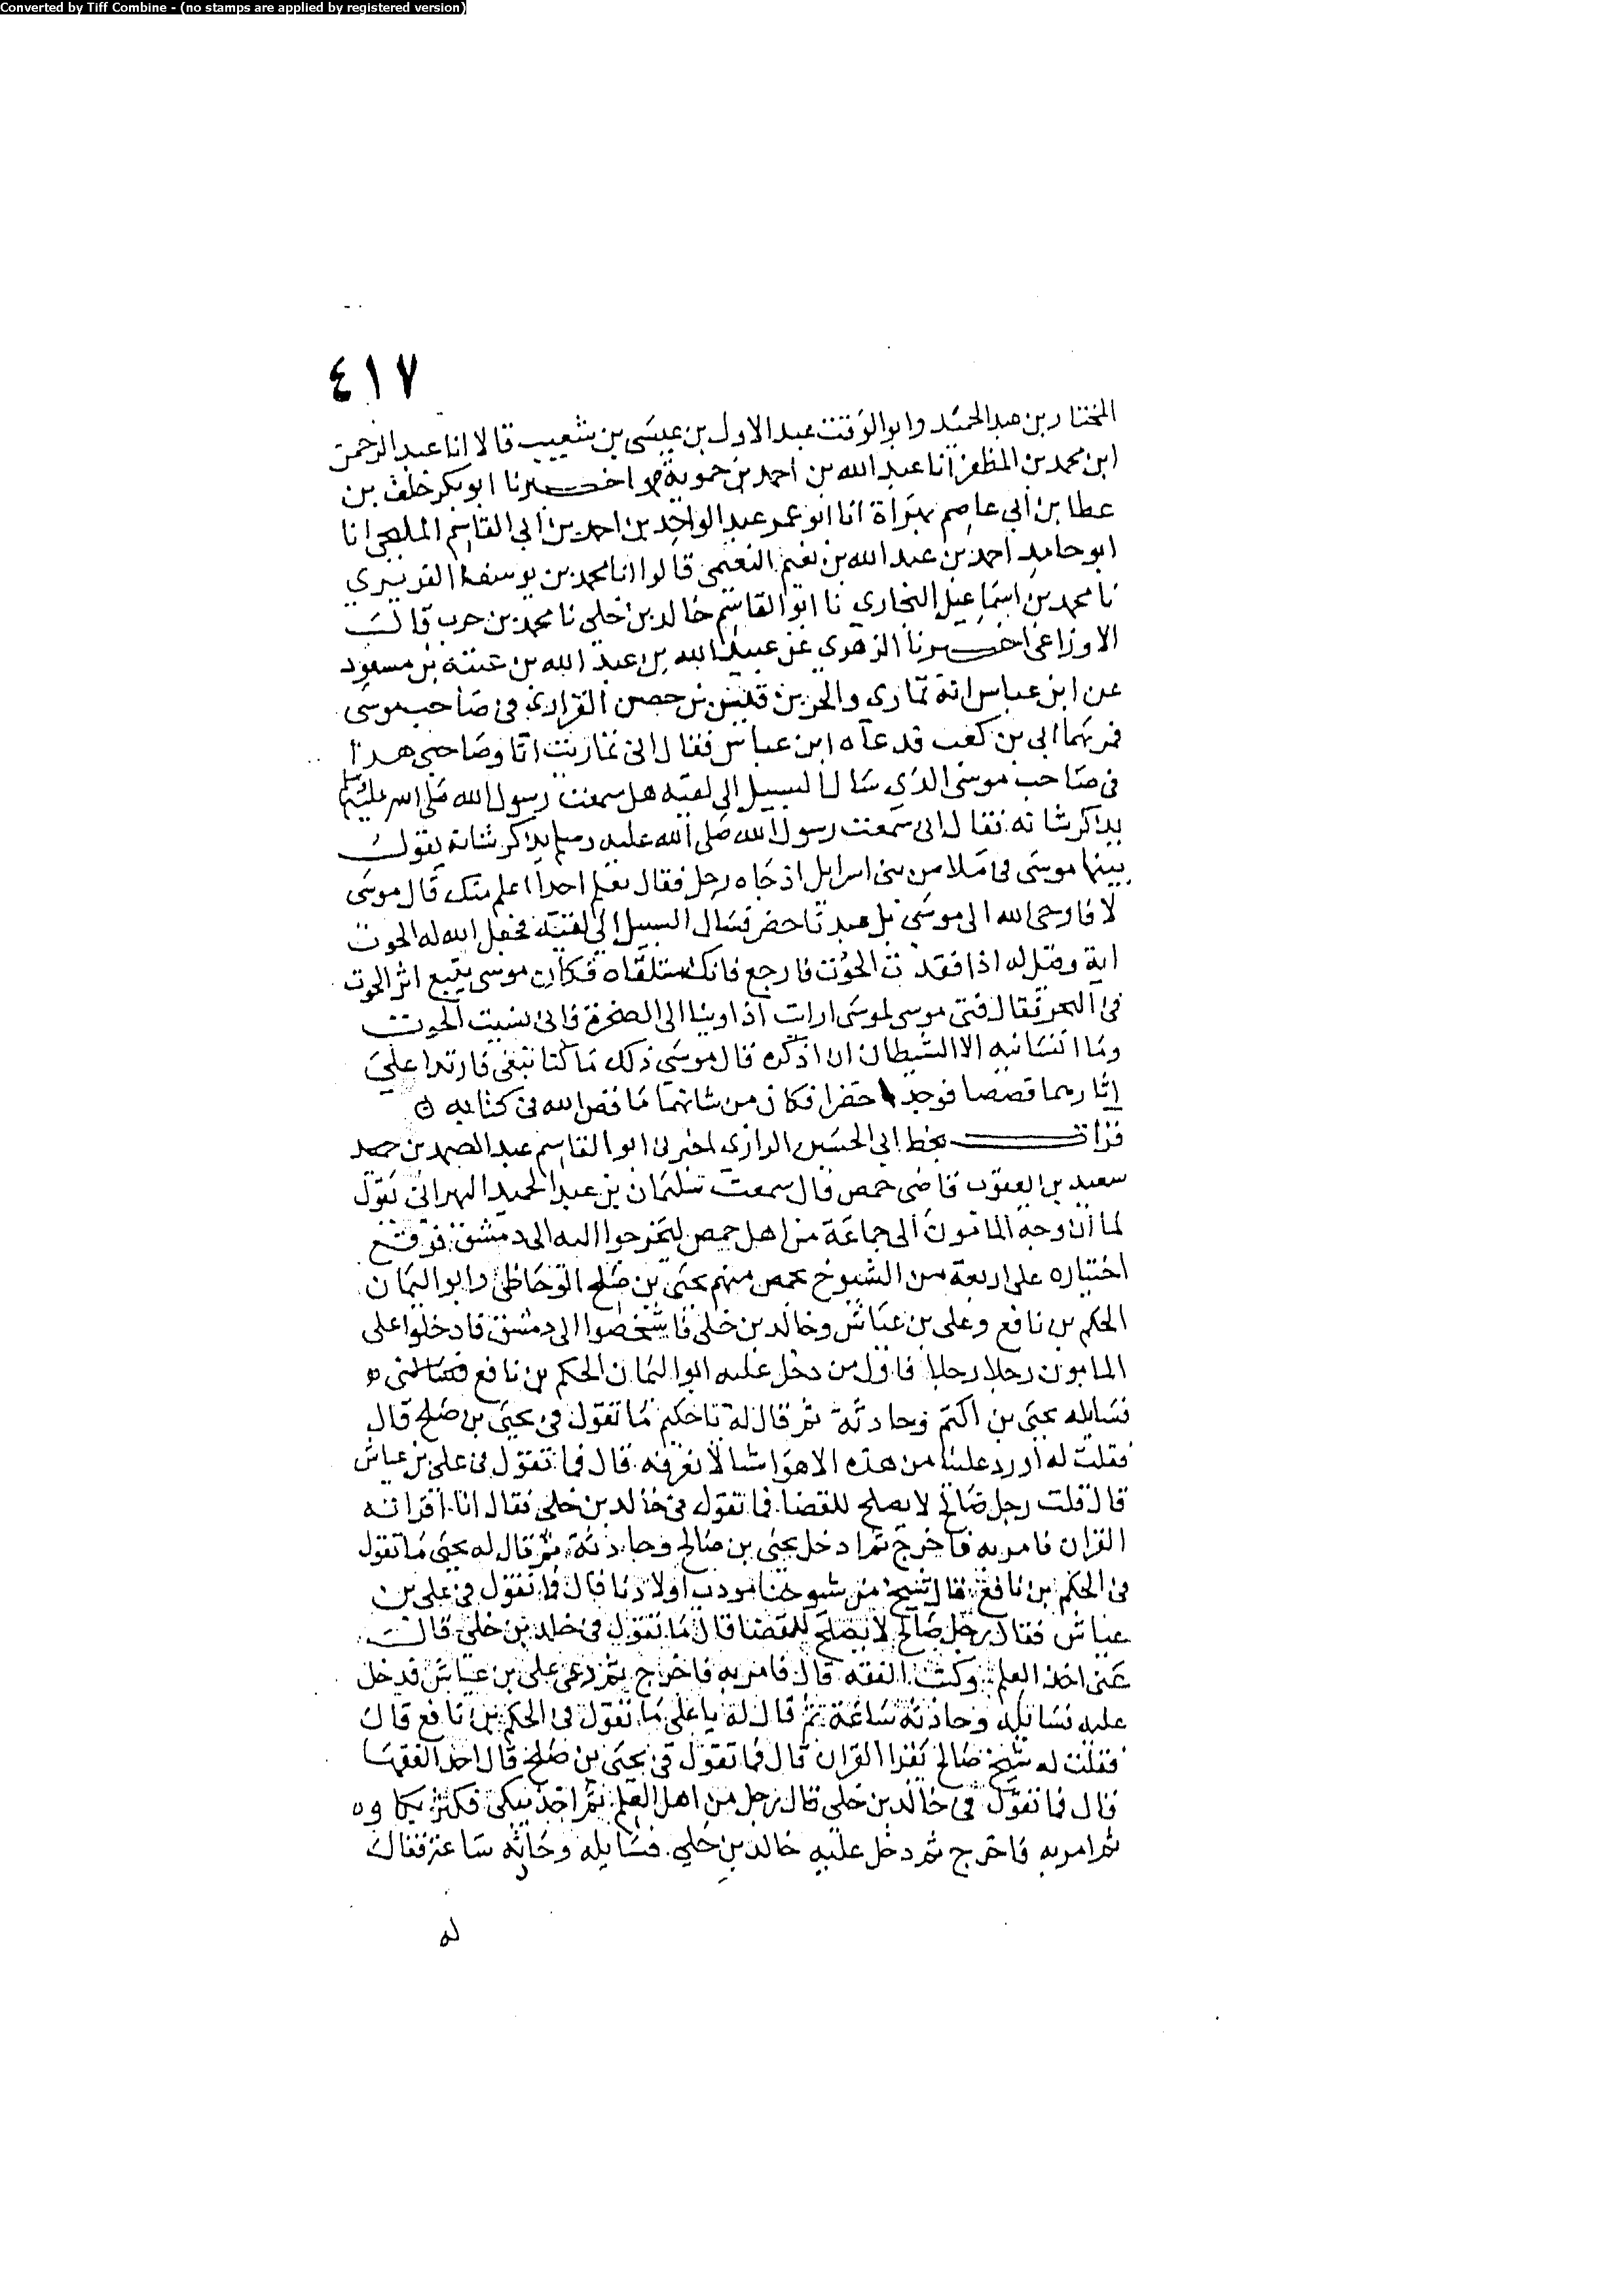 Converted by Tiff Combine - (no stamps are applied by registered version)
٤١٧
المختار بن عبد الحميد وابو الوقت عبد الاول بن عيسى بن شعيب قالا انا عبد الرحمن
ابن محمد بن المظفر انا عبد الله بن احمد بن حموية ح واخبرنا ابو بكر خلف بن
عطا بن ابي عاصم بهراة انا ابو عمر عبد الواحد بن احمد بن ابي القاسم المليحي انا
ابو حامد احمد بن عبد الله بن نعيم النعيمي قالوا انا محمد بن يوسف الفربري
نا محمد بن اسماعيل البخاري نا ابو القاسم خالد بن خلي نا محمد بن حرب قال
الاوزاعي اخبرنا الزهري عن عبيد الله بن عبد الله بن عتبة بن مسعود
عن ابن عباس انه تمارى والحر بن قيس بن حصن الفزاري في صاحب موسى
فمر بهما ابي بن كعب فدعاه ابن عباس فقال اني تماريت انا وصاحبي هذا
في صاحب موسى الذي سال السبيل الى لقيه هل سمعت رسول الله صلى الله عليه وسلم
يذكر شانه فقال اني سمعت رسول الله صلى الله عليه وسلم يذكر شانه يقول
بينما موسى في ملا من بني اسرايل اذ جاه رجل فقال تعلم احدا اعلم منك قال موسى
لا فاوحى الله الى موسى بل عبدنا خضر فسال السبيل الى لقيه فجعل الله له الحوت
اية وقيل له اذا فقدت الحوت فارجع فانك ستلقاه فكان موسى يتبع اثر الحوت
في البحر فقال فتى موسى لموسى ارات اذ اوينا الى الصخرة فاني نسيت الحوت
وما انسانيه الا الشيطان ان اذكره قال موسى ذلك ما كنا نبغي فارتدا على
اثارهما قصصا فوجدا خضرا فكان من شانهما ما قص الله في كتابه
قرات بخط ابي الحسين الرازي اخبرني ابو القاسم عبد الصمد بن
سعيد بن يعقوب قاضي حمص قال سمعت سليمان بن عبد الحميد البهراني يقول
لما ان وجه المامون الى جماعة من اهل حمص ليخرجوا اليه الى دمشق فوقع
اختياره على اربعة من الشيوخ بحمص منهم يحيى بن صلح الوحاظي وابو اليمان
الحكم بن نافع وعلي بن عياش وخالد بن خلي فاشخصوا الى دمشق فادخلوا على
المامون رجلا رجلا فاول من دخل عليه ابو اليمان الحكم بن نافع
فسايله يحيى بن اكتم وحادثه ثم قال له يا حكيم ما تقول في يحيى بن صلح قال
فقلت له اورد علينا من هذه الاهوا شيا لا نعرفه قال فما تقول في علي بن عياش
قال قلت رجل صالح لا يصلح للقضا فما تقول في خالد بن خلي فقال انا اقراته
القران فامر به فاخرج ثم ادخل يحيى بن صالح وحادثه ثم قال له يحيى ما تقول
في الحكم بن نافع فقال شيخ من شيوخنا مودب اولادنا قال فما تقول في علي بن
عياش فقال رجل صالح لا يصلح للقضا قال ما تقول في خلد بن خلي قال
عني اخذ العلم وكتب الفقه قال فامر به فاخرج ثم دعى علي بن عياش فدخل
عليه فسايله وحادثه ساعة ثم قال له يا علي ما تقول في الحكم بن نافع قال
فقلت له شيخ صالح يقرا القران قال فما تقول في يحيى بن صلح قال احد الفقها
قال فما تقول في خالد بن خلي قال رجل من اهل العلم ثم اخذ يبكي فكثر بكاوه
ثم امر به فاخرج ثم دخل عليه خالد بن خلي فسايله وحادثه ساعة فقال
له